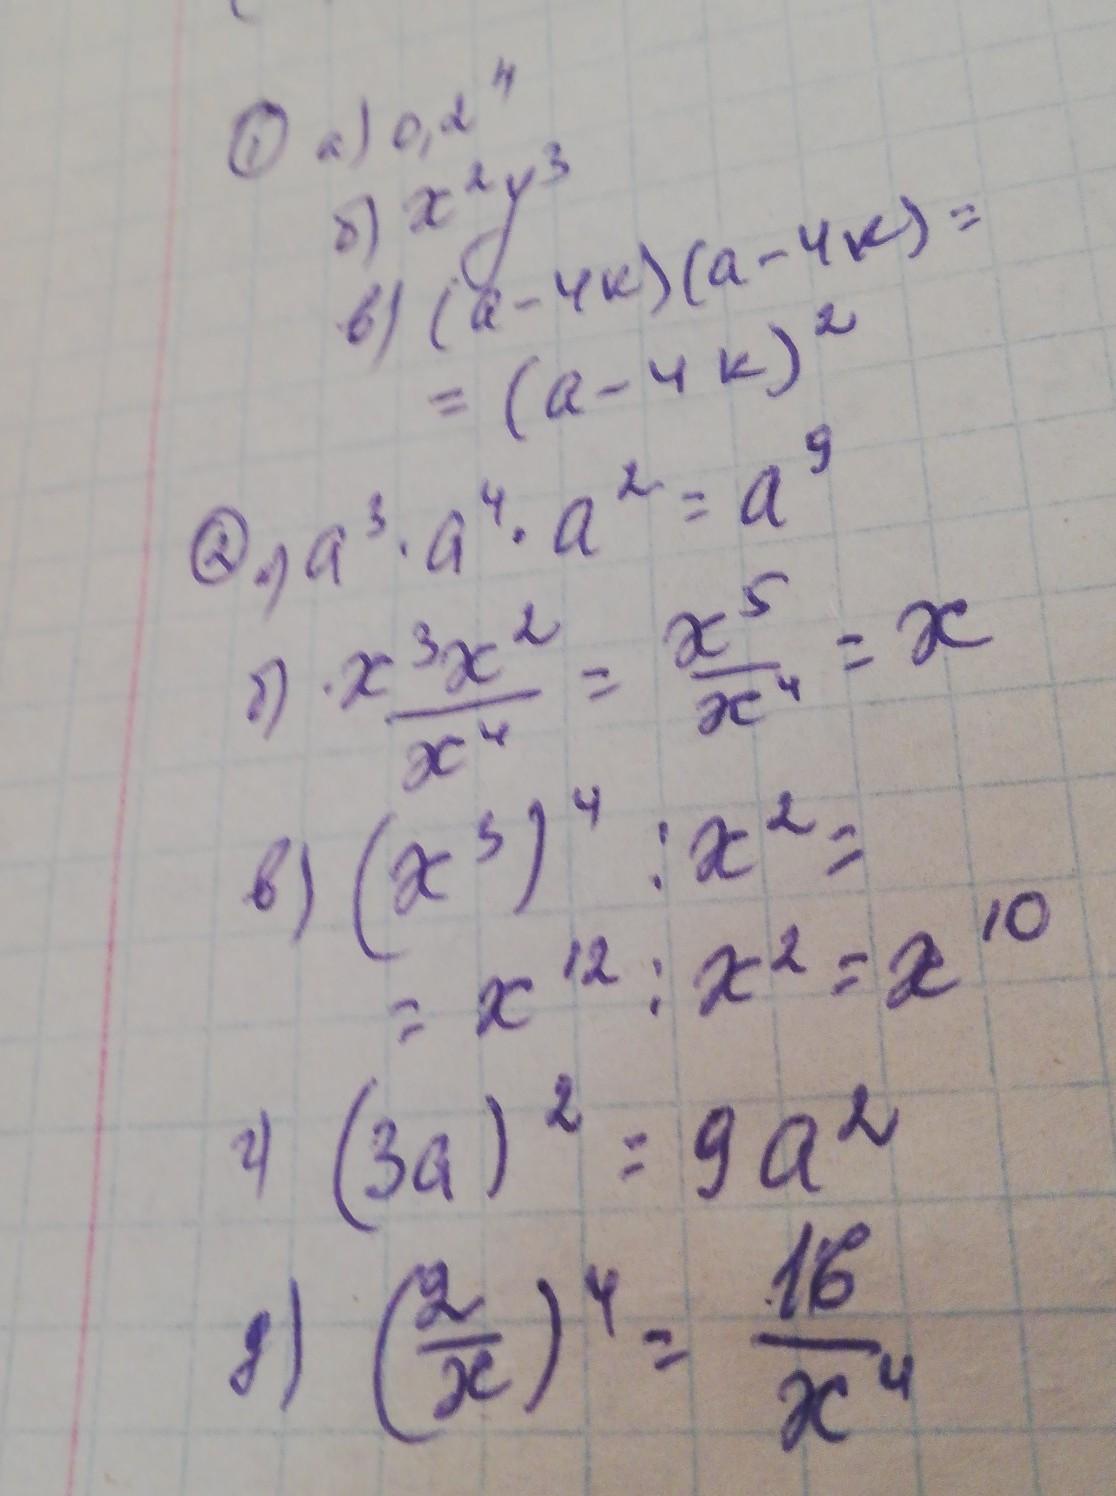 ① а) 0,2⁴
б) x²y³
в) (a-4к)(a-4к)=
= (a-4к)²
② а) a³·a⁴·a² = a⁹
б) x³x²/x⁴ = x⁵/x⁴ = x
в) (x³)⁴ : x² =
= x¹² : x² = x¹⁰
г) (3a)² = 9a²
д) (2/x)⁴ = 16/x⁴